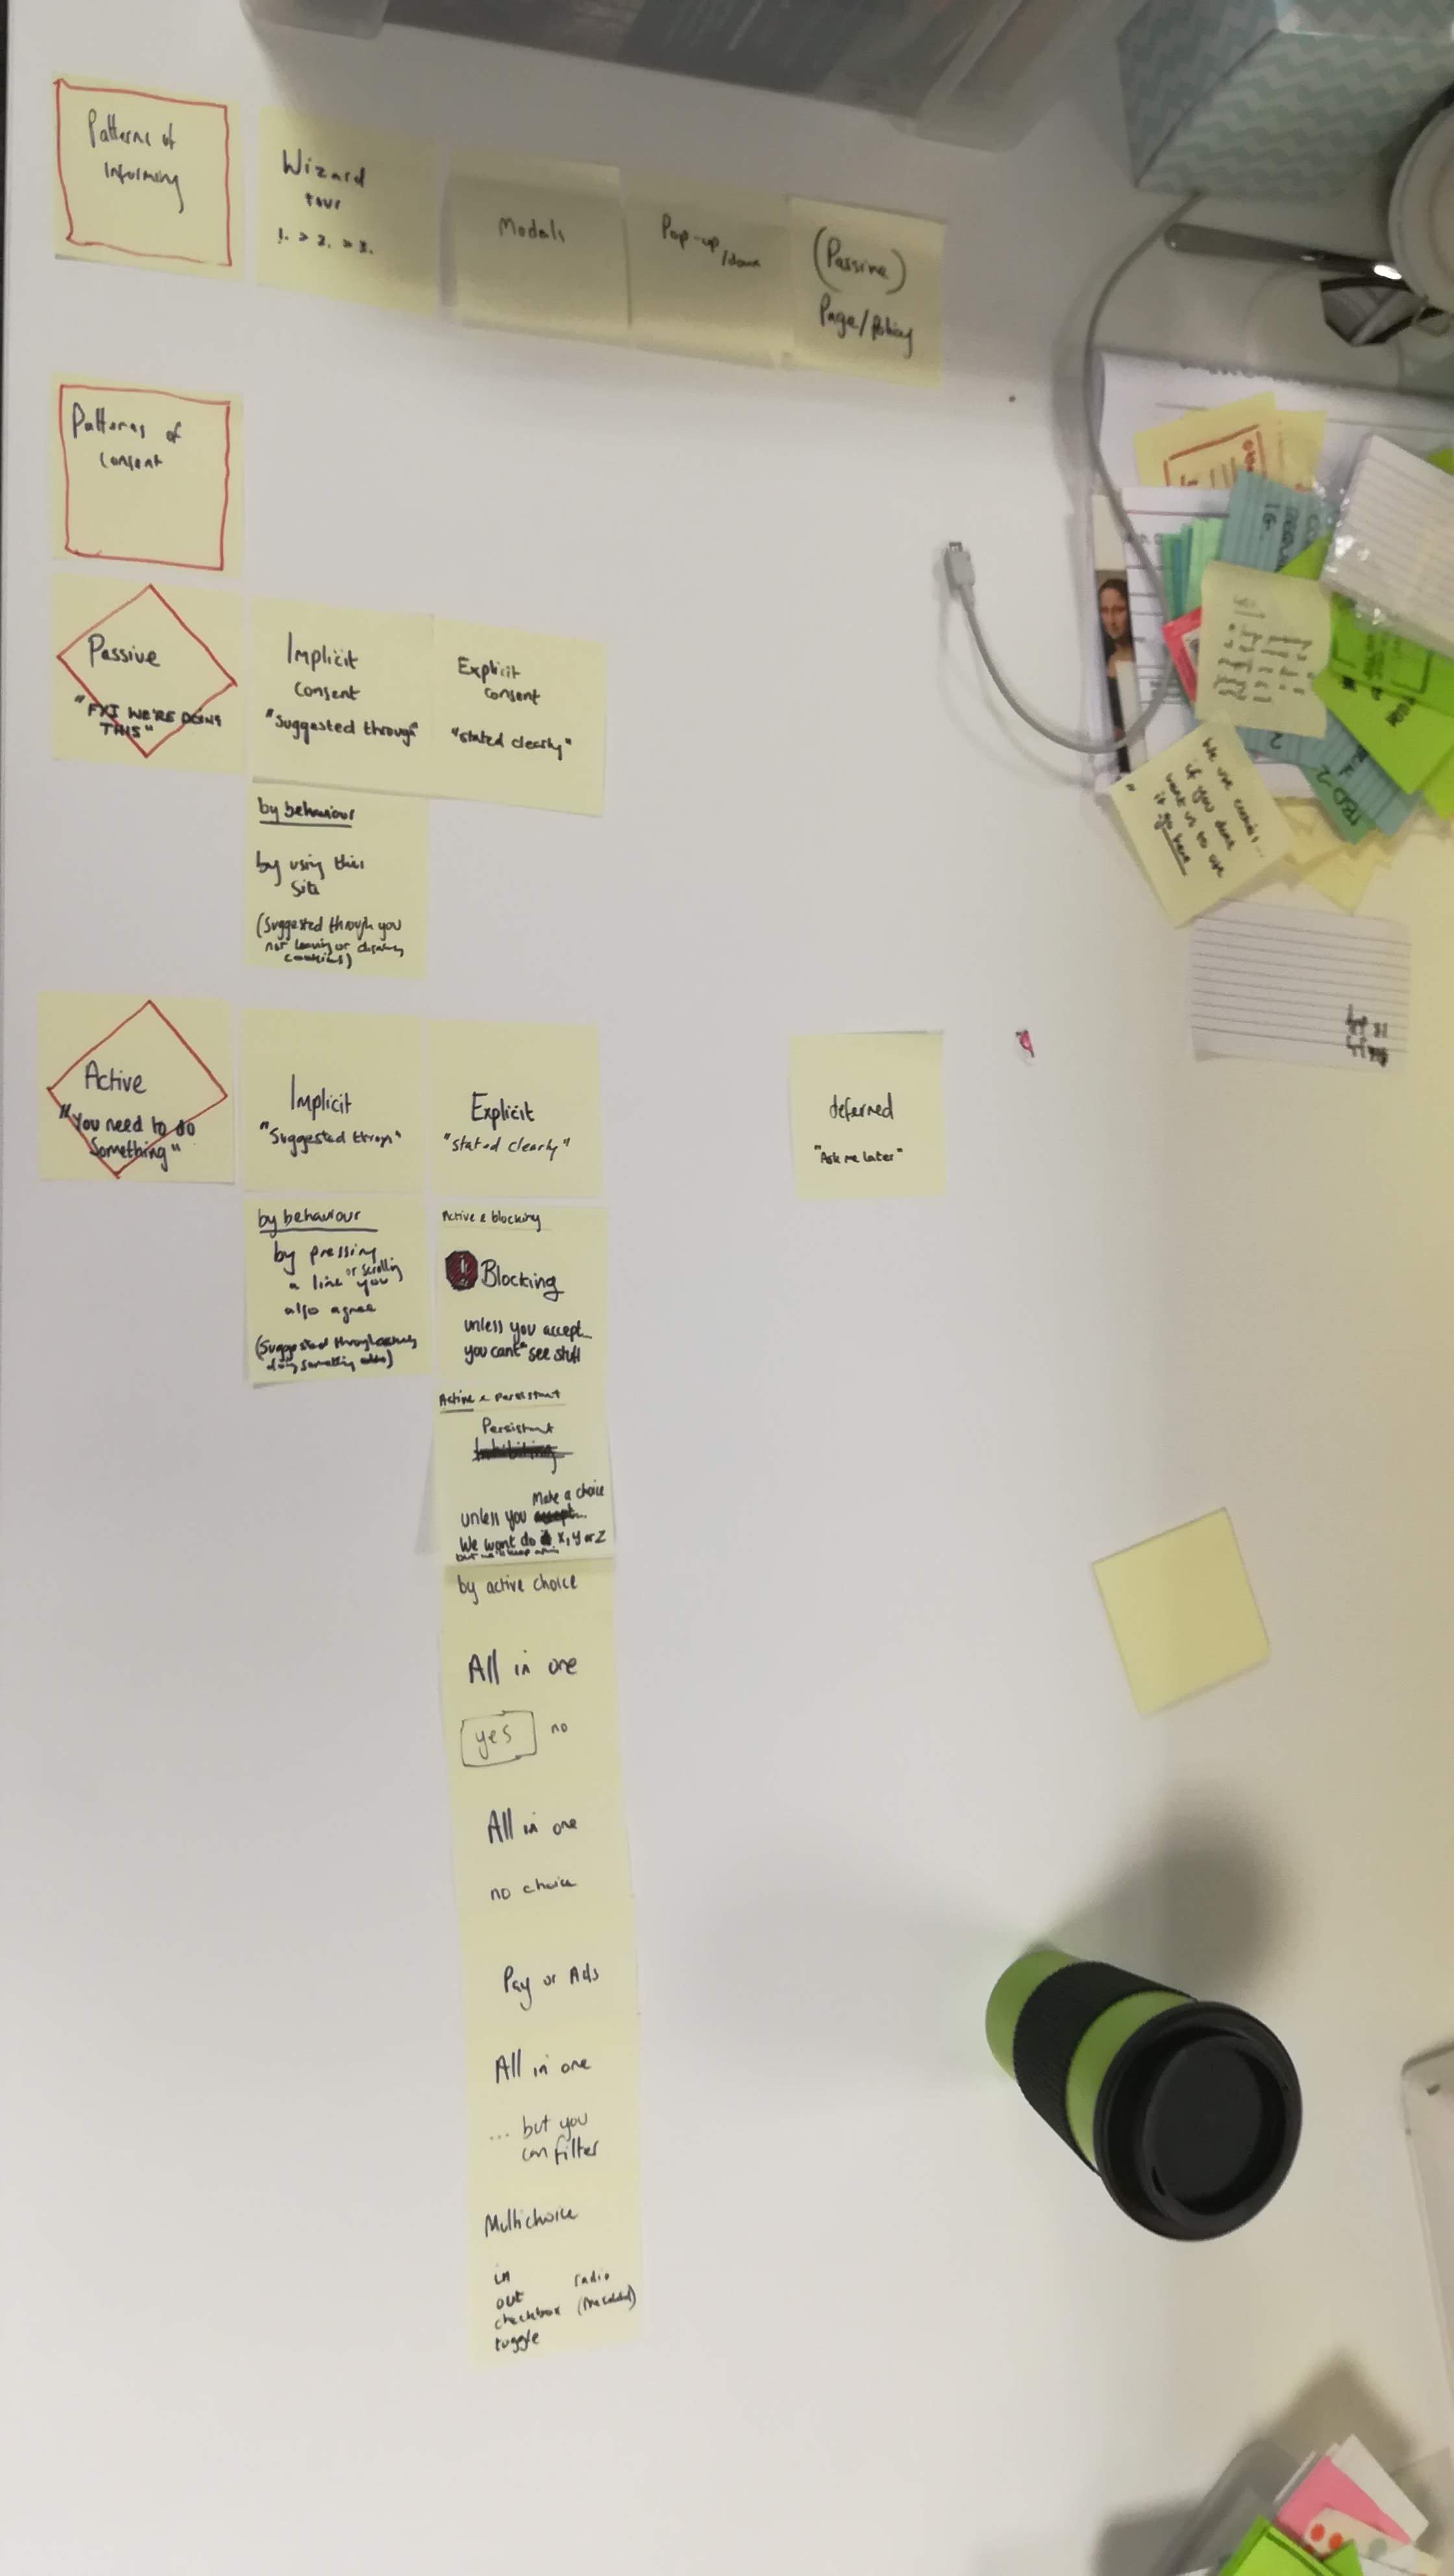 Patterns of
Informing
Wizard
tour
1. > 2. > 3.
Modals
Pop-up
/down
(Passive)
Page/Policy
Patterns of
Consent
Passive
"FYI WE'RE DOING
THIS"
Implicit
Consent
"Suggested through"
Explicit
consent
"stated clearly"
by behaviour
by using this
site
(Suggested through you
not leaving or
cookies)
Active
"You need to do
Something"
Implicit
"Suggested through"
Explicit
"stated clearly"
deferred
"Ask me later"
by behaviour
by pressing
or scrolling
a link you
also agree
(Suggested through
doing something
Active & blocking
! Blocking
unless you accept
you cant see stuff
Active & persistant
Persistant
Make a choice
unless you
We wont do X, Y or Z
by active choice
All in one
yes no
All in one
no choice
Pay or Ads
All in one
... but you
can filter
Multichoice
in
out
checkbox
toggle
radio
We use cookies...
if you dont
want us to use
it go here